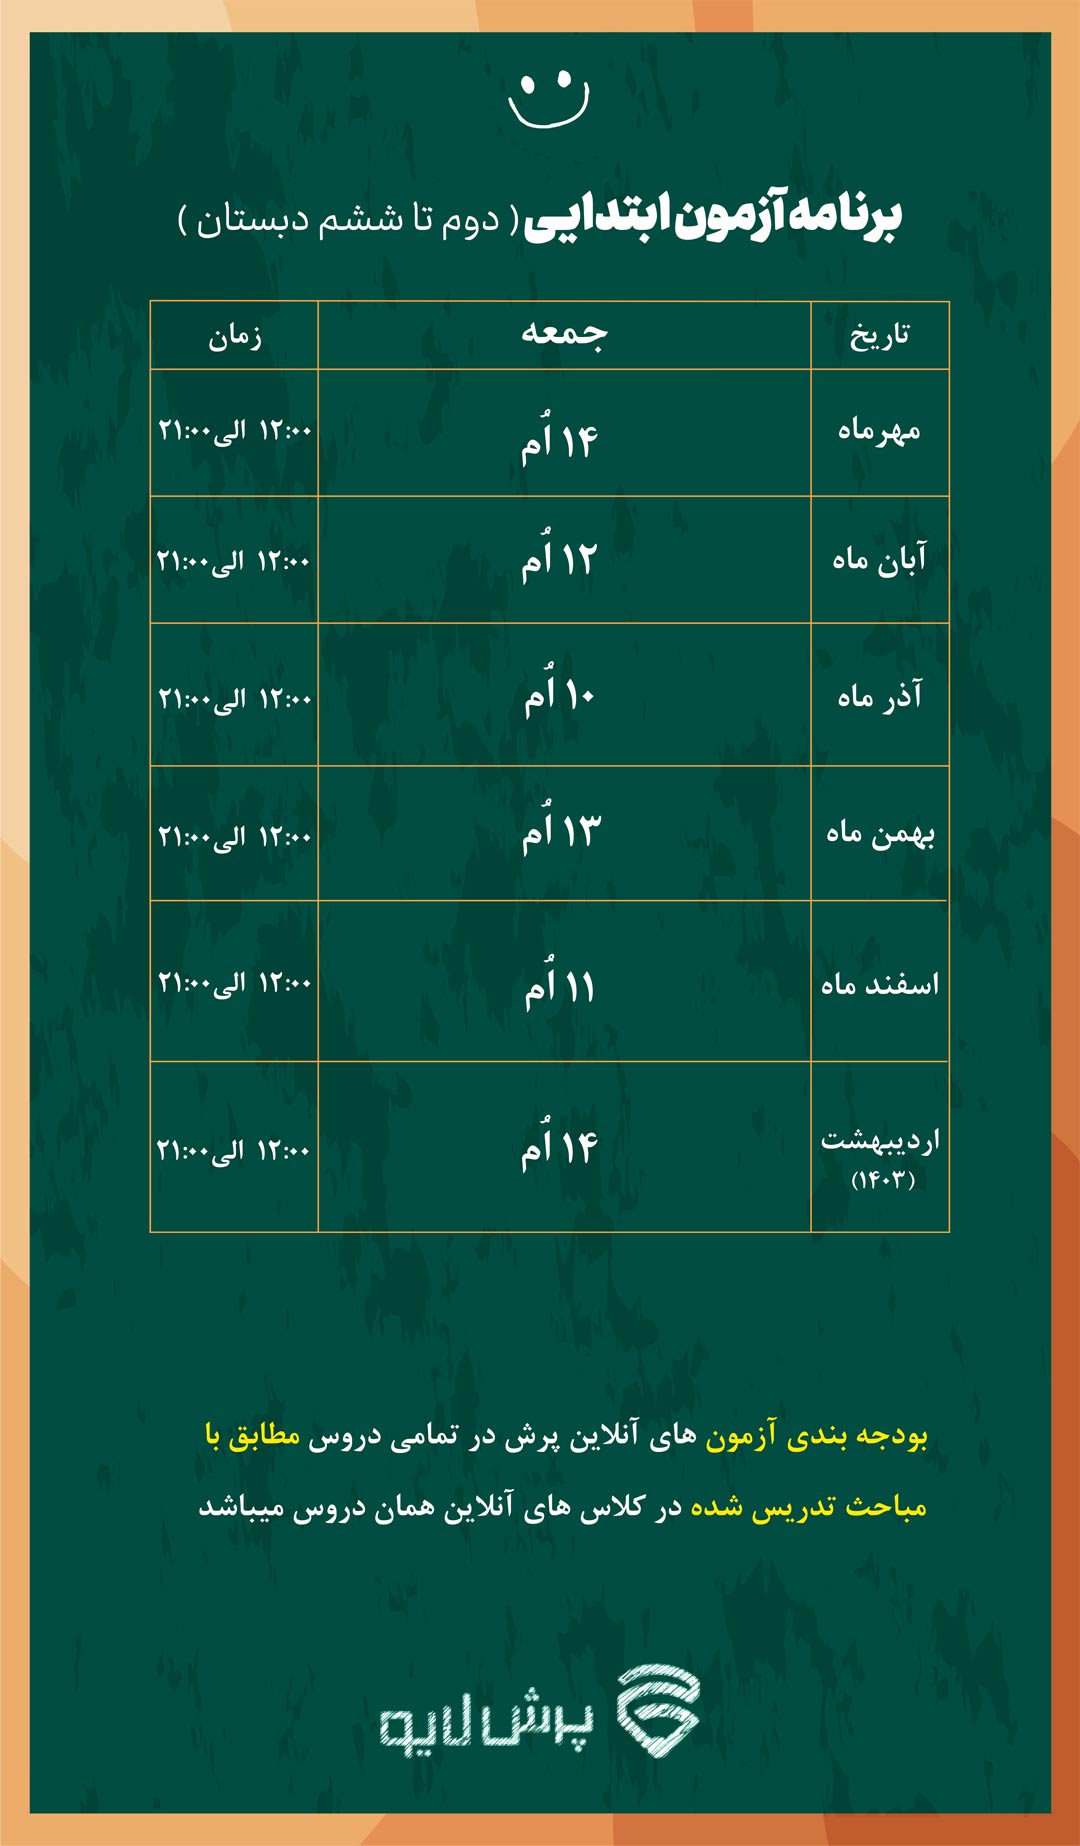 برنامه آزمون ابتدایی ( دوم تا ششم دبستان )
تاریخ جمعه زمان
مهرماه ۱۴ اُم ۱۲:۰۰ الی ۲۱:۰۰
آبان ماه ۱۲ اُم ۱۲:۰۰ الی ۲۱:۰۰
آذر ماه ۱۰ اُم ۱۲:۰۰ الی ۲۱:۰۰
بهمن ماه ۱۳ اُم ۱۲:۰۰ الی ۲۱:۰۰
اسفند ماه ۱۱ اُم ۱۲:۰۰ الی ۲۱:۰۰
اردیبهشت ۱۴ اُم ۱۲:۰۰ الی ۲۱:۰۰
(۱۴۰۳)
بودجه بندی آزمون های آنلاین پرش در تمامی دروس مطابق با
مباحث تدریس شده در کلاس های آنلاین همان دروس میباشد
پرش لایو